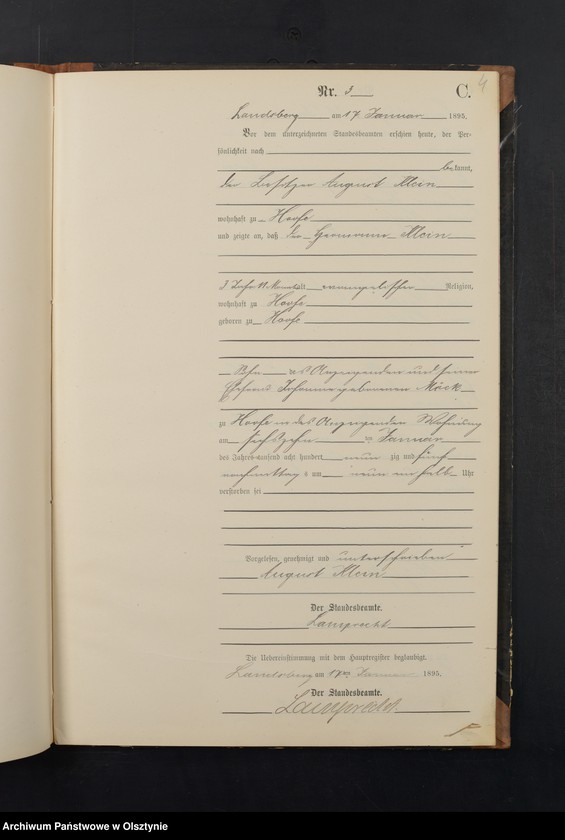 Nr. 3 C. 4
Landsberg am 17 Januar 1895.
Vor dem unterzeichneten Standesbeamten erschien heute, der Per-
sönlichkeit nach
bekannt,
der Besitzer August Klein
wohnhaft zu Hoofe
und zeigte an, daß der Hermann Klein
3 Jahr 11 Monat alt evangelischer Religion,
wohnhaft zu Hoofe
geboren zu Hoofe
Sohn des Anzeigenden und seiner
Ehefrau Johanne geborenen Möck
zu Hoofe in des Anzeigenden Wohnung
am sechszehn ten Januar
des Jahres tausend acht hundert neun zig und fünf
nachmittags um neun ein halb Uhr
verstorben sei
Vorgelesen, genehmigt und unterschrieben
August Klein
Der Standesbeamte.
Lamprecht
Die Uebereinstimmung mit dem Hauptregister beglaubigt.
Landsberg am 17ten Januar 1895.
Der Standesbeamte.
Lamprecht
Archiwum Państwowe w Olsztynie